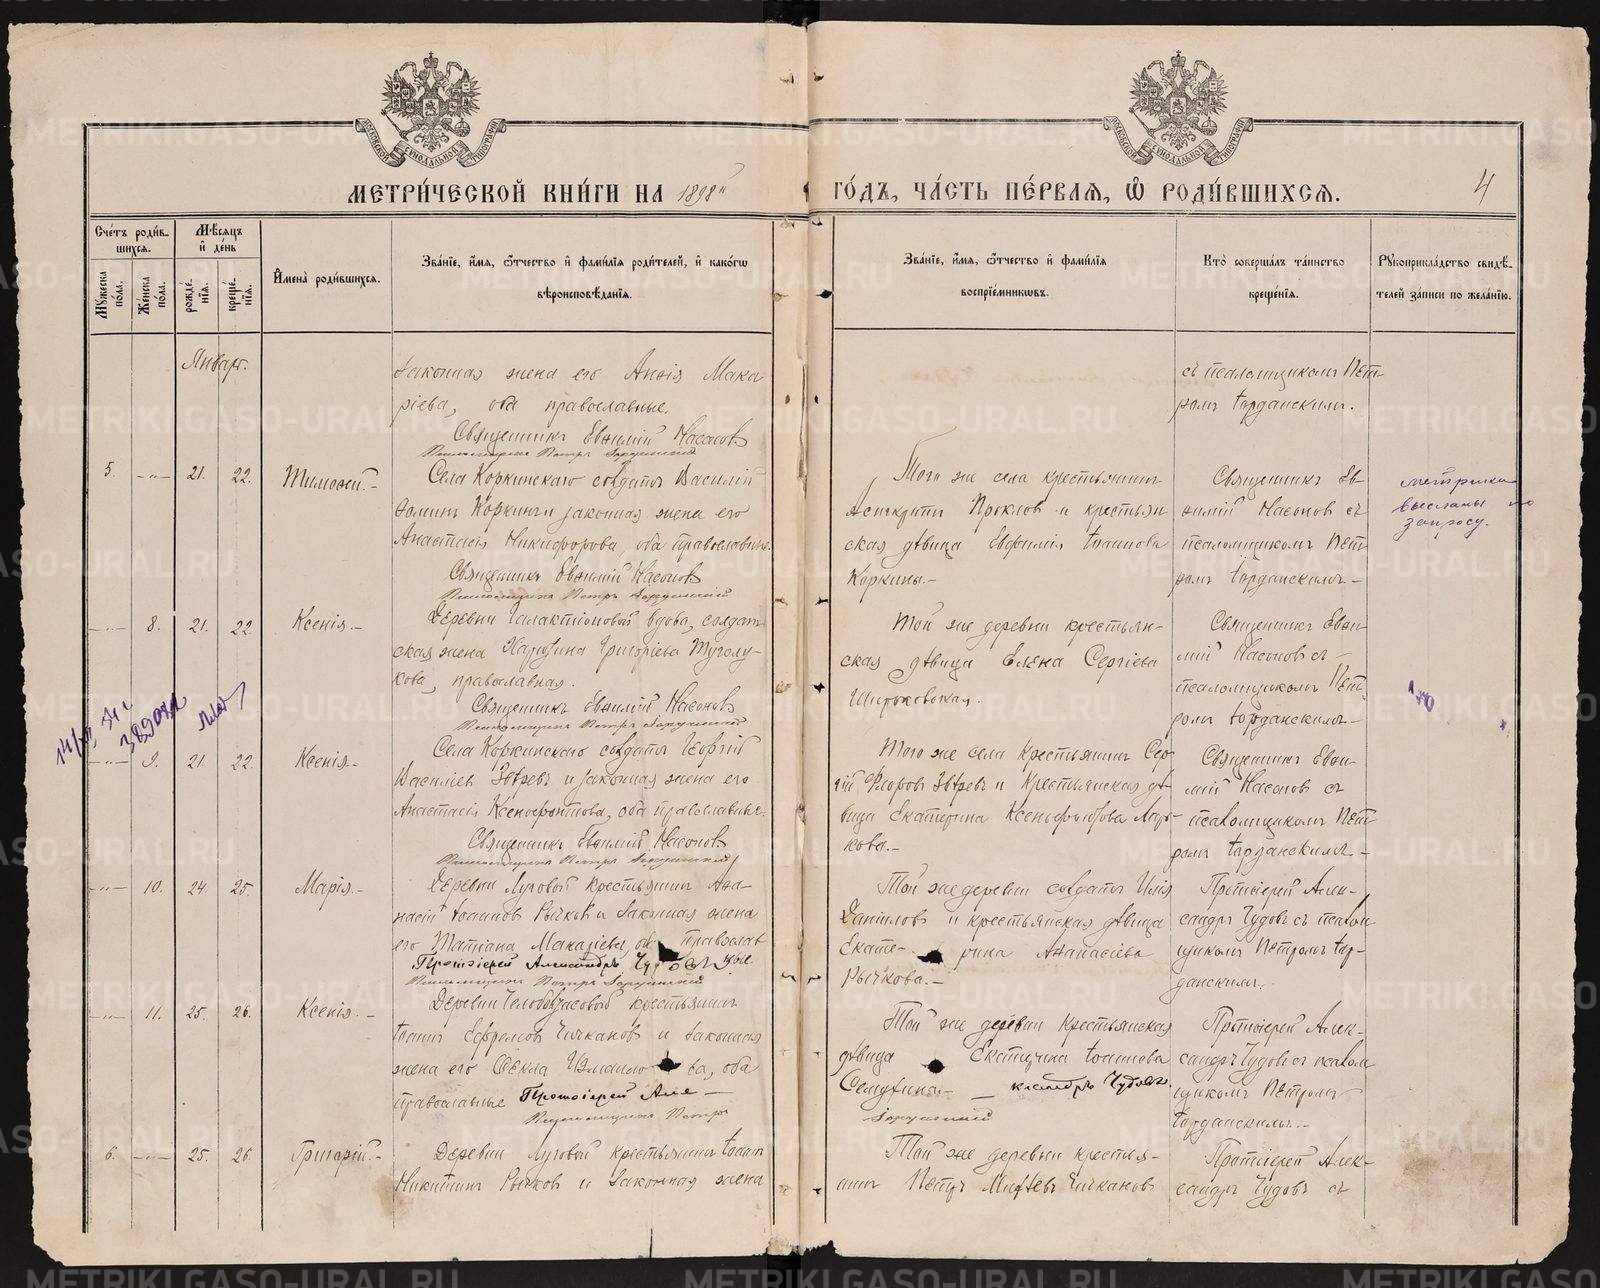 МЕТРИ́ЧЕСКОЙ КНИ́ГИ НА 1898й ГО́ДЪ, ЧА́СТЬ ПЕ́РВАЯ, Ѽ РОДИ́ВШИХСЯ.
4
Сче́тъ роди́в-
шихся.
Мѣсяцъ
и҆ де́нь
Мꙋжеска
по́ла.
Же́нска
по́ла.
рожде́-
нїя.
креще́-
нїя.
И҆мена̀ роди́вшихся.
Зва́нїе, и҆́мя, ѻ҆́тчество и҆ фами́лїя роди́телей, и҆ како́гѡ
вѣроисповѣ́данїя.
Зва́нїе, и҆́мя, ѻ҆́тчество и҆ фами́лїя
воспрїе́мникѡвъ.
Кто̀ соверша́лъ та́инство
креще́нїя.
Рꙋкоприкла́дство свидѣ́-
телей за́писи по жела́нїю.
Январь.
законная жена его Анѳія Мака
ріева, оба православные.
Священникъ Евѳимій Насонов
Псаломщикъ Петръ Іорданскій
съ псаломщикомъ Пет-
ромъ Іорданскимъ.
5. -„- 21. 22. Тимоѳей.-
Села Коркинскаго солдатъ Василій
Ѳоминъ Коркинъ и законная жена его
Анастасія Никифорова, оба православные.
Священникъ Евѳимій Насонов
Псаломщикъ Петръ Іорданскій
Того же села крестьянинъ
Асигкритъ Проклов и крестьян
ская дѣвица Евфимія Іоаннова
Коркины.-
Священникъ Ев-
ѳимій Насонов съ
псаломщикомъ Пет-
ромъ Іорданскимъ-
метрики
высланы по
запросу.
-„- 8. 21. 22 Ксенія.-
Деревни Галактіоновой вдова, солдат
ская жена Харитина Григоріева Туголу-
кова, православная.
Священникъ Евѳимій Насонов
Псаломщикъ Петръ Іорданскій
Той же деревни крестьян-
ская дѣвица Елена Сергіева
Широковская.
Священникъ Евѳи-
мій Насонов съ-
псаломщикомъ Пет-
ромъ Іорданскимъ-
-„- 9. 21. 22. Ксенія.-
Села Коркинскаго солдатъ Георгій
Василіев Звѣревъ и законная жена его
Анастасія Ксенофонтова, оба православные.
Священникъ Евѳимій Насонов
Псаломщикъ Петръ Іорданскій
Того же села Крестьянинъ Сер-
гій Флоровъ Звѣревъ и Крестьянская дѣ-
вица Екатерина Ксенофонтова
кова.-
Священникъ Евѳи-
мій Насонов съ
псаломщикомъ Пет-
ромъ Іорданскимъ.-
-„- 10. 24. 25. Марія.-
Деревни Луговой крестьянинъ Аѳа-
насій Іоаннов Рычков и Законная жена
его Татіана Макаріева, оба православ
ные
Протоіерей Александръ Чудовъ
Псаломщикъ Петръ Іорданскій
Той же деревни солдатъ Илія
Данилов и крестьянская дѣвица
Екате- рина Аѳанасіева
Рычкова.-
Протоіерей Алек-
сандръ Чудовъ съ псалом
щикомъ Петромъ Іор-
данскимъ.
-„- 11. 25. 26. Ксенія.-
Деревни крестьянинъ
Іоаннъ Ефремов Чичканов и законная
жена его Ѳекла Измаило ва, оба
православные Протоіерей Але-
ксандръ Чудовъ.
Псаломщикъ Петръ
Іорданскій
Той же деревни Крестьянская
дѣвица Екатерина Іоаннова
Семухина-
Протоіерей Алек-
сандръ Чудовъ съ псалом
щикомъ Петромъ
Іорданскимъ.-
6. -„- 25. 26 Григорій.-
Деревни Луговой крестьянинъ Іоаннъ
Никитинъ Рычков и Законная жена
Той же деревни крестья-
нинъ Петръ Чичканов
Протоіерей Алек-
сандръ Чудовъ съ
METRIKI.GASO-URAL.RU